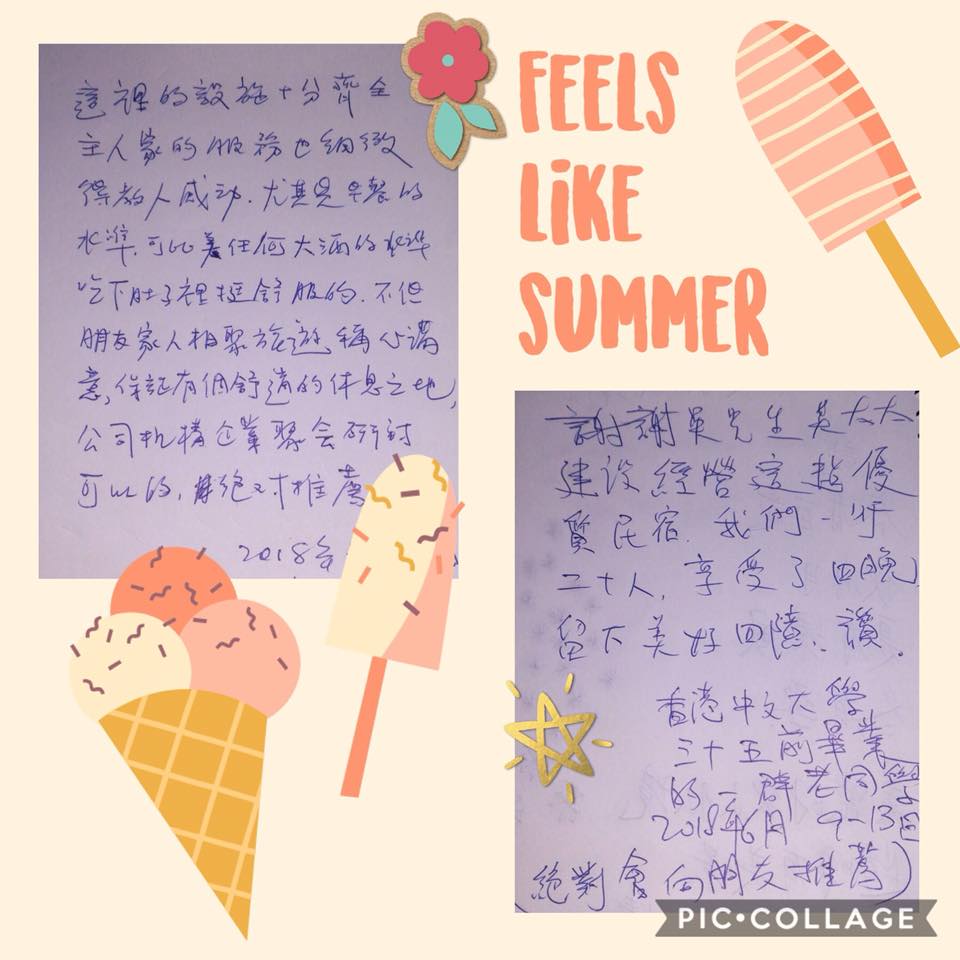 這裡的設施十分齊全
主人家的服務也細緻
得教人感动.尤其是早餐的
水準.可比美任何大酒的水準
吃下肚子裡挺舒服的.不但
朋友家人相聚旅遊稱心滿
意,保証有個舒適的休息之地,
公司机構企業聚会研討
可以的,絕对推薦
2018年
FEELS
LiKE
SUMMER
謝謝吳先生吳太太
建设經營這趟優
質民宿.我們一行
二十人,享受了四晚
留下美好回憶.讚.
香港中文大學
三十五前畢業
的一群老同學
2018年6月 9-13日
(絕對會向朋友推薦)
PIC•COLLAGE